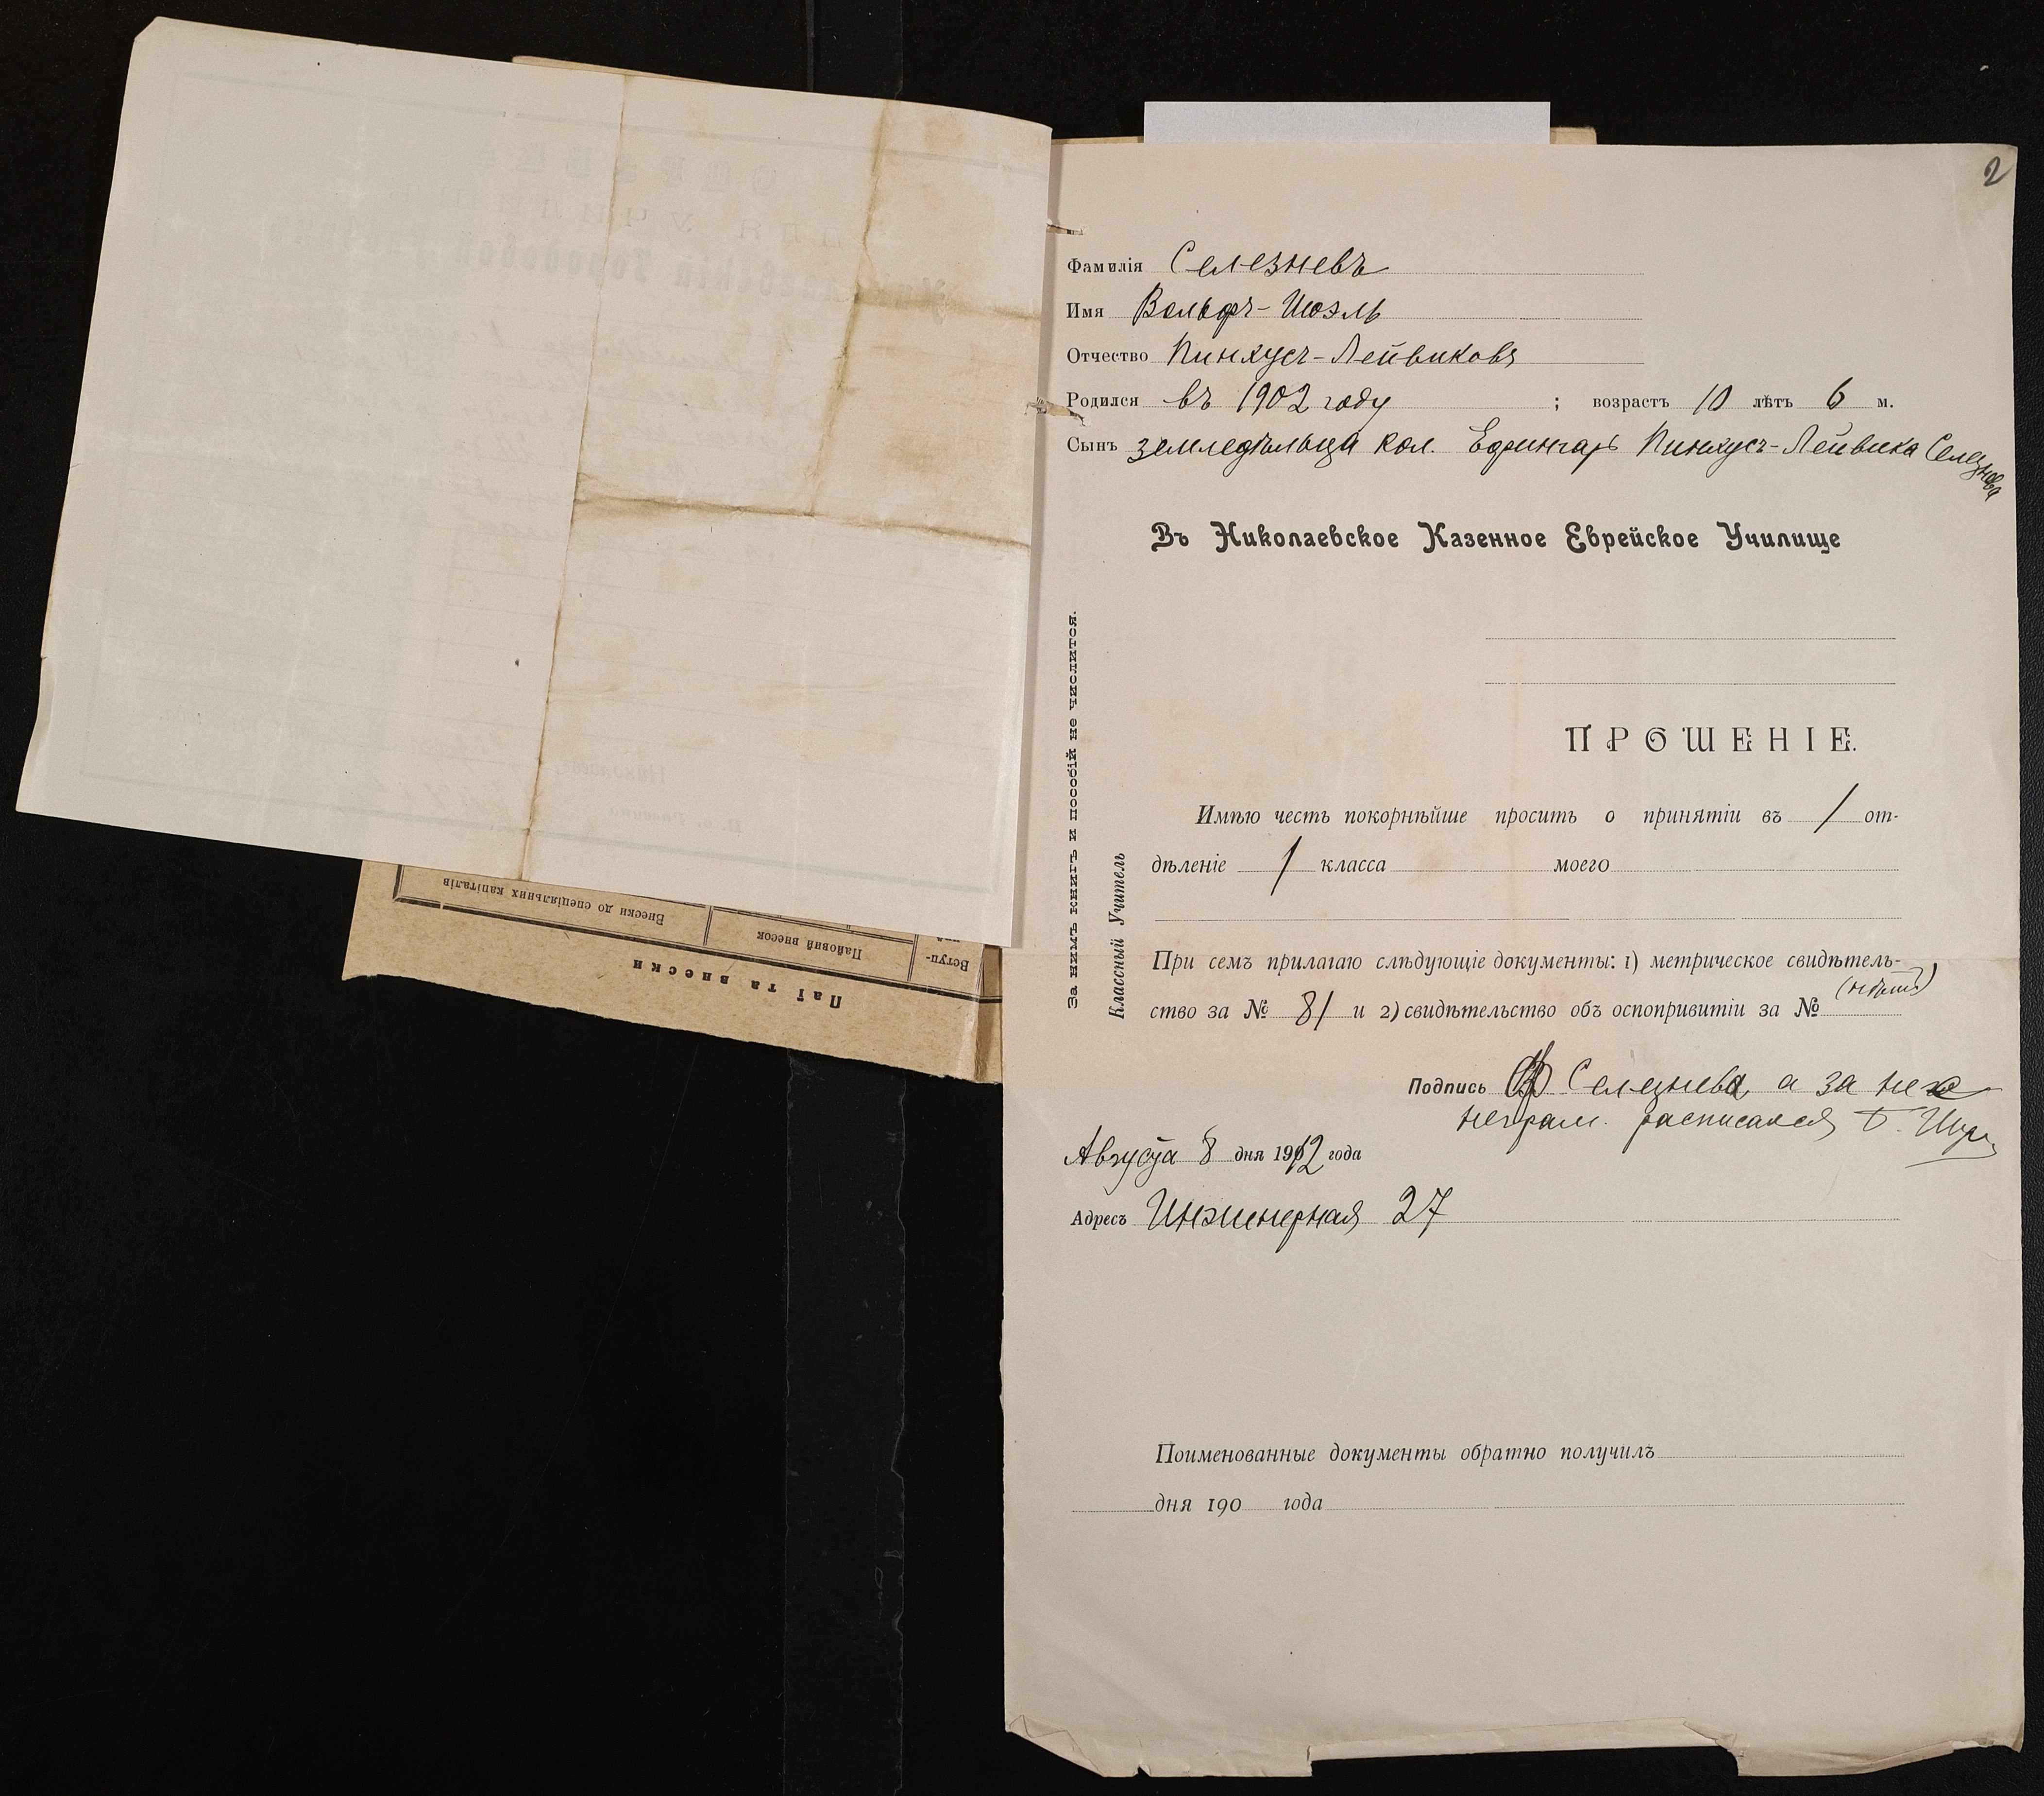 2
Фамилія Селезневъ
Имя Вольфъ-Июэль
Отчество Пинхусъ-Лейвиковъ
Родился въ 1902 году ; возрастъ 10 лѣтъ 6 м.
Сынъ земледѣльца кол. Ефингаръ Пинхусъ-Лейвика Селезнева
Въ Николаевское Казенное Еврейское Училище
ПРОШЕНІЕ.
Имѣю честь покорнѣйше просить о принятіи въ 1 от-
дѣленіе 1 класса моего
При семъ прилагаю слѣдующіе документы: 1) метрическое свидѣтель-
ство за № 81 и 2) свидѣтельство объ оспопривитіи за №
Подпись Селезнева, а за нее
неграм. расписался Б.
Августа 8 дня 1912 года
Адресъ Инженерная 27
Поименованные документы обратно получилъ
дня 190 года
За нимъ книгъ и пособій не числится.
Классный Учитель
Паї та внески
Вступ-
Пайовий внесок
Внески до спеціяльних капіталів